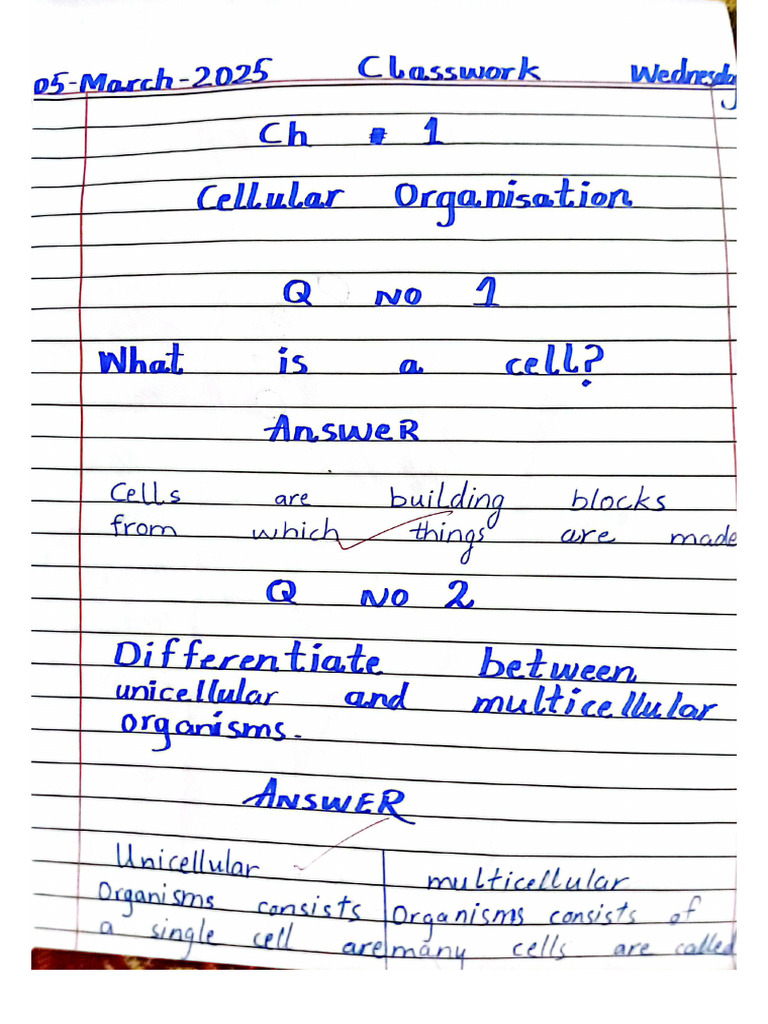 05-March-2025 Classwork Wednesday
Ch # 1
Cellular Organisation
Q no 1
What is a cell?
Answer
Cells are building blocks
from which things are made
Q no 2
Differentiate between
unicellular and multicellular
organisms.
Answer
Unicellular multicellular
Organisms consists Organisms consists of
a single cell are many cells are called